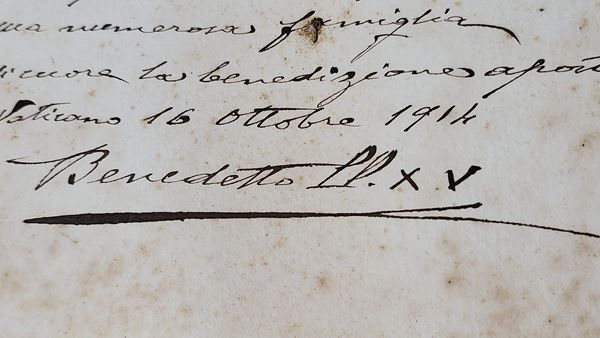 numerosa famiglia
di cuore la benedizione
Vaticano 16 Ottobre 1914
Benedetto PP. XV